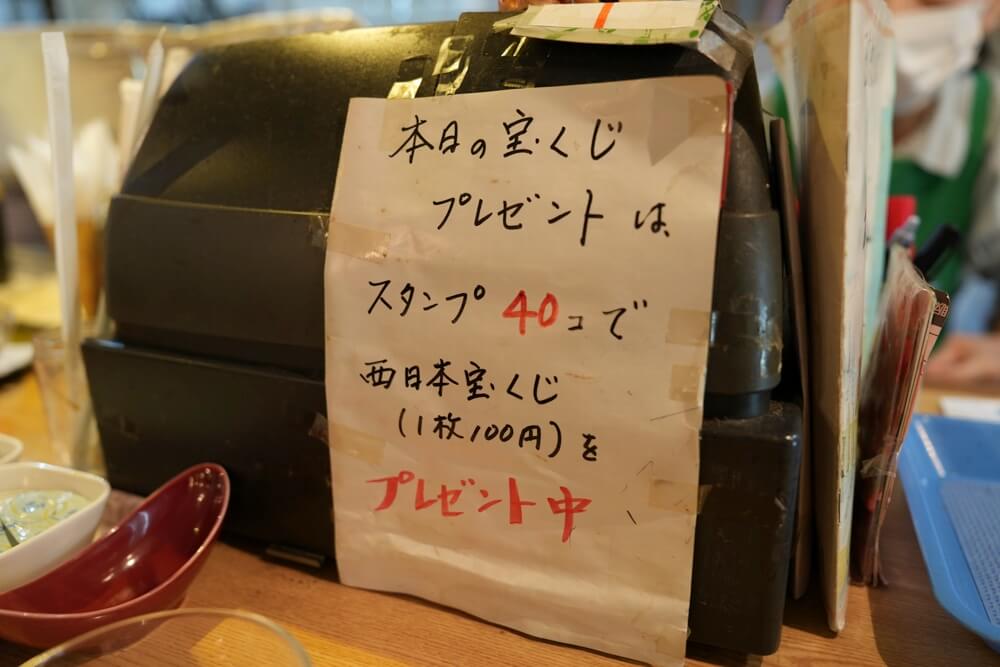 本日の宝くじ
プレゼントは、
スタンプ40コで
西日本宝くじ
(1枚100円)を
プレゼント中